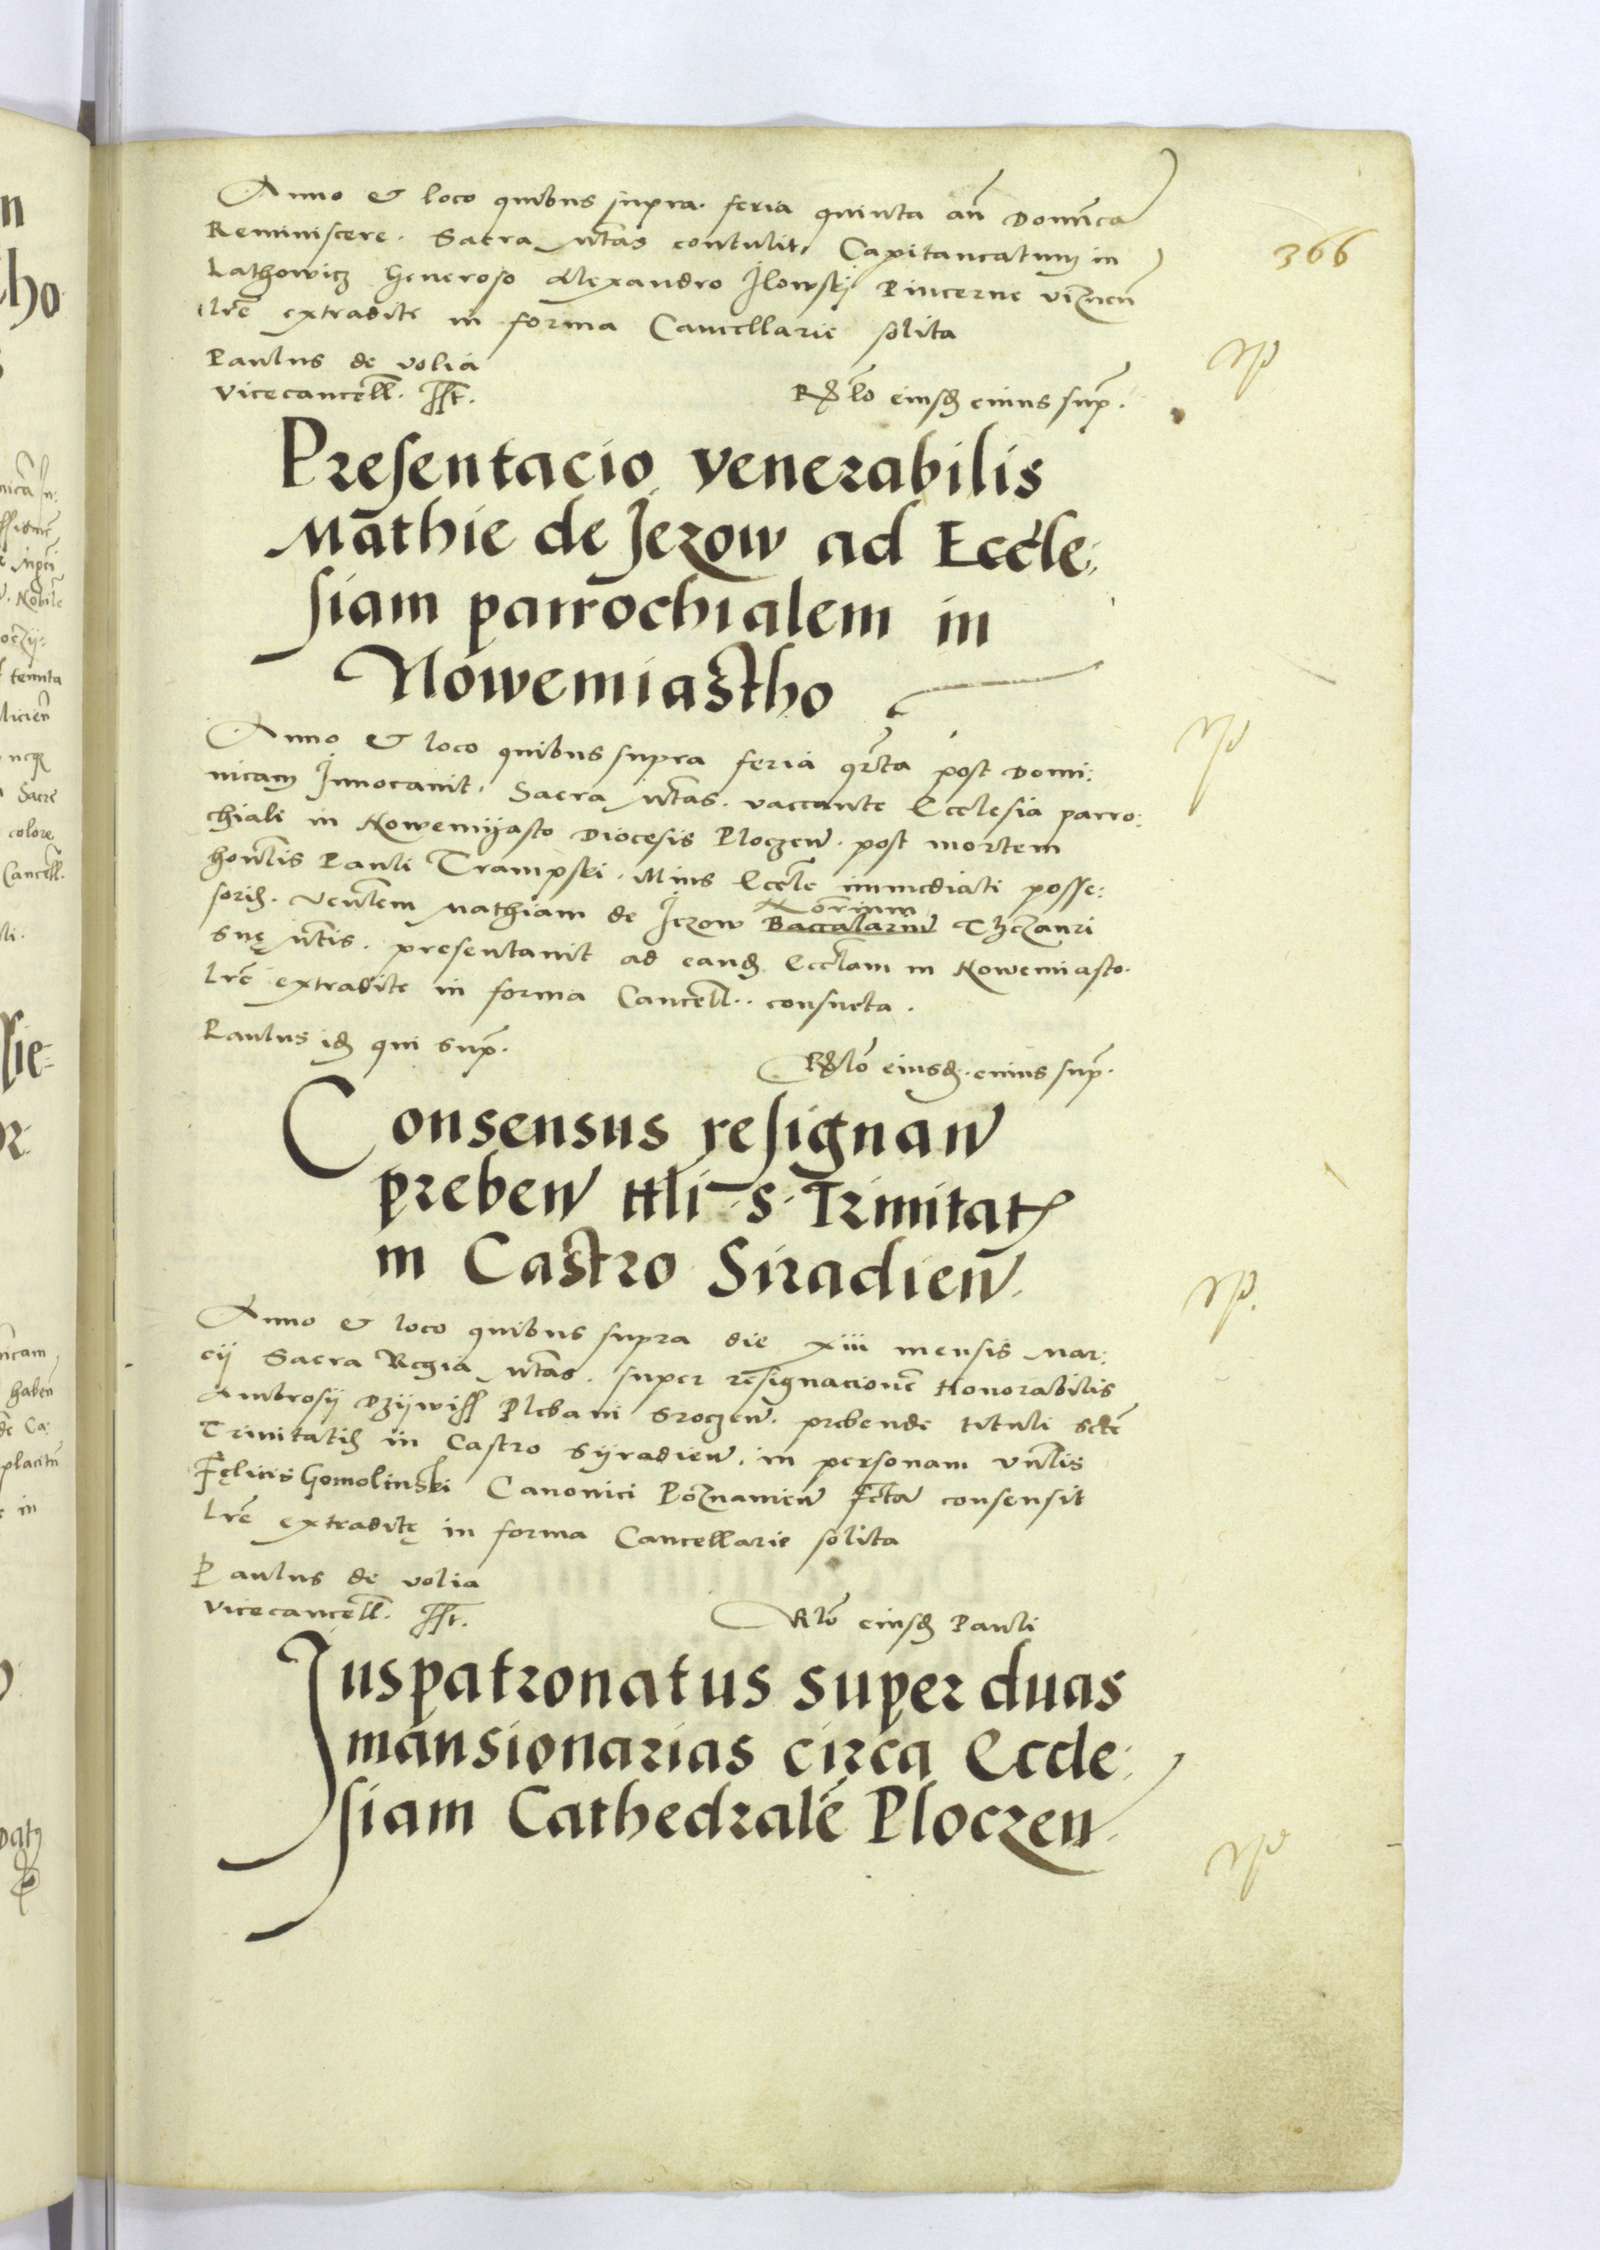 366
Anno & loco quibus supra. feria quinta an̄ Domīca
Reminiscere. Sacra Mtas contulit Capitaneatum in
Lathowicz Generoso Alexandro Ilowskÿ Pincerne viznen̄
Lr̄e extradite in forma Cancellarie solita
Paulus de volia
Vicecancell. sst.
Rlo eiusd cuius sup.
Presentacio venerabilis
Mathie de Jezow ad Eccle:
siam parrochialem in
Nowemiastho
Anno & loco quibus supra feria qrta post Domi:
nicam Innocauit. Sacra Mtas. vaccante Ecclesia parro:
chiali in Nowemÿasto Diocesis Ploczen. post mortem
honlis Pauli Trampski. illius Eccle immediati posse:
soris. venlem Mathiam de Jezow Baccalarum Thezauri
sue Mtis. presentauit ad eand Ecclam in Nowemiasto.
Lr̄e extradite in forma Cancell. consueta.
Paulus id qui sup.
Rlo eiusd. cuius sup.
Consensus resignan
preben ttli s. Trinitat
in Castro Siradien.
Anno & loco quibus supra die xiii mensis Mar:
cij Sacra Regia Mtas. super resignacionē Honorabilis
Ambrosij Dzÿwiss Plebani Sroczen. prebende tituli scte
Trinitatis in Castro Sÿradien. in personam Vnlis
Felicis Gomolinski Canonici Poznanien fcta consensit
Lr̄e extradite in forma Cancellarie solita
Paulus de volia
Vicecancell. sst.
Rlo eiusd Pauli
Juspatronatus super duas
mansionarias circa Eccle:
siam Cathedralē Ploczen.